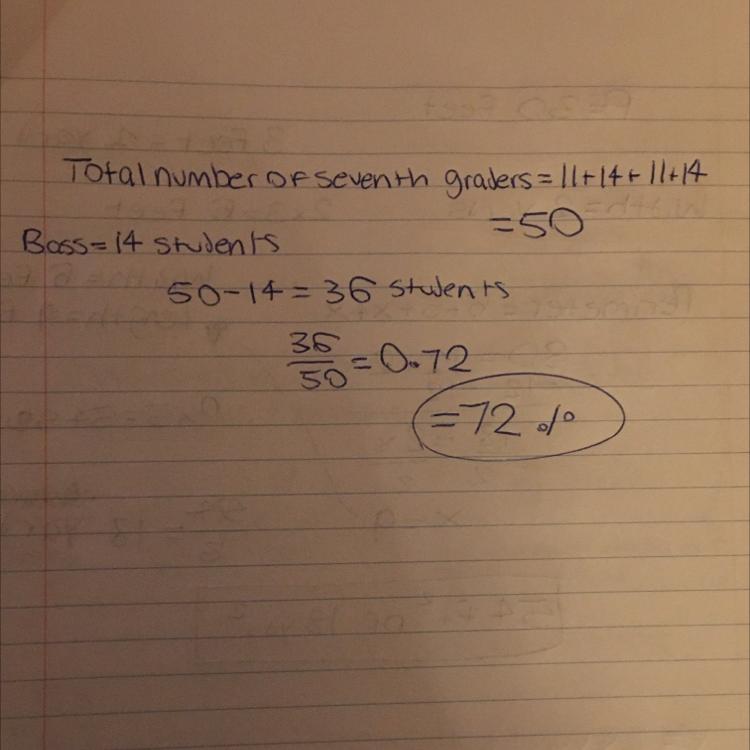 Total number of seventh graders = 11+14+11+14
= 50
Bass = 14 students
50 - 14 = 36 students
36/50 = 0.72
= 72 %